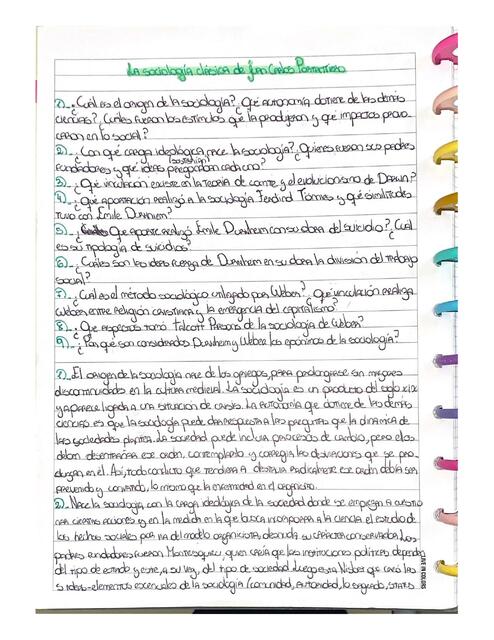 La sociología clásica de Juan Carlos Portantiero
1)_ ¿Cuál es el origen de la sociología? ¿Qué autonomía obtiene de las demás
ciencias? ¿Cuáles fueron los estímulos que la produjeron y qué impactos provo-
caron en lo social?
2)_ ¿Con qué carga ideológica nace la sociología? ¿Quienes fueron sus padres
fundadores y qué ideas cada uno?
3)_ ¿Qué vinculación existe en la teoría de Comte y el evolucionismo de Darwin?
4)_ ¿Qué aportación realizó a la sociología Ferdind Tönnies y qué similitudes
tuvo con Émile Durkheim?
5)_ ¿Qué aporte realizó Émile Durkheim con su obra del suicidio? ¿Cuál
es su tipología de suicidios?
6)_ ¿Cuáles son las ideas fuerza de Durkheim en su obra la división del trabajo
social?
7)_ ¿Cuál es el método sociológico utilizado por Weber? ¿Qué vinculación realiza
Weber entre religión cristiana y la emergencia del capitalismo?
8)_ ¿Que aspectos tomó Talcott Parsons de la sociología de Weber?
9)_ ¿Por qué son considerados Durkheim y Weber los epónimos de la sociología?
1)_ El origen de la sociología nace de los griegos, para prolongarse sin mayores
discontinuidades en la cultura medieval. La sociología es un producto del siglo XIX
y aparece ligada a una situación de crisis. La autonomía que obtiene de las demás
ciencias es que la sociología puede dar respuesta a las preguntas que la dinámica de
las sociedades plantea. La sociedad puede incluir procesos de cambio, pero ellos
deben desenvolverse ese orden, contemplarlo y corregir las desviaciones que se pro-
duzcan en él. Así, todo conflicto que tendiera a destruir radicalmente ese orden debía ser
prevenido y combatido, lo mismo que la enfermedad en el organismo.
2)_ Nace la sociología con la carga ideológica de la sociedad donde se empiezan a cuestio
nar ciertas acciones y en la medida en la que busca incorporar a la ciencia el estudio de
los hechos sociales por vía del modelo organicista, desnuda su carácter conservador. Los
padres fundadores fueron Montesquieu, quien creía que las instituciones políticas dependen
del tipo de estado y este, a su vez, del tipo de sociedad. Luego esta Nisbet que creó las
5 ideas-elementos esenciales de la sociología (comunidad, autoridad, lo sagrado, status